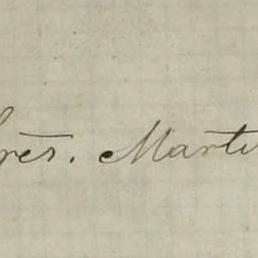 res. Marti